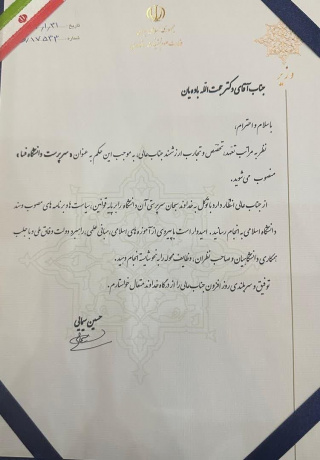 وزیر
جناب آقای دکتر عمت الله باده یان
باسلام و احترام،
نظر به مراتب تعهد، تخصص و تجارب ارزشمند جناب‌عالی، به موجب این حکم به عنوان «سرپرست دانشگاه
منصوب می‌شوید.
از جناب عالی انتظار دارد با توکل به خداوند سبحان سرپرستی آن دانشگاه را بر پایه قوانین، سیاست‌ها و برنامه‌های مصوب و سند
دانشگاه اسلامی به انجام رسانید. امیدوار است با پیروی از آموزه‌های اسلامی، مبانی علمی، راهبرد دولت وفاق ملی و با جلب
همکاری دانشگاهیان و صاحب نظران، وظایف محوله را به نحو شایسته انجام دهید.
توفیق و سربلندی روز افزون جناب‌عالی را از درگاه خداوند متعال خواستارم.
حسین سیمایی